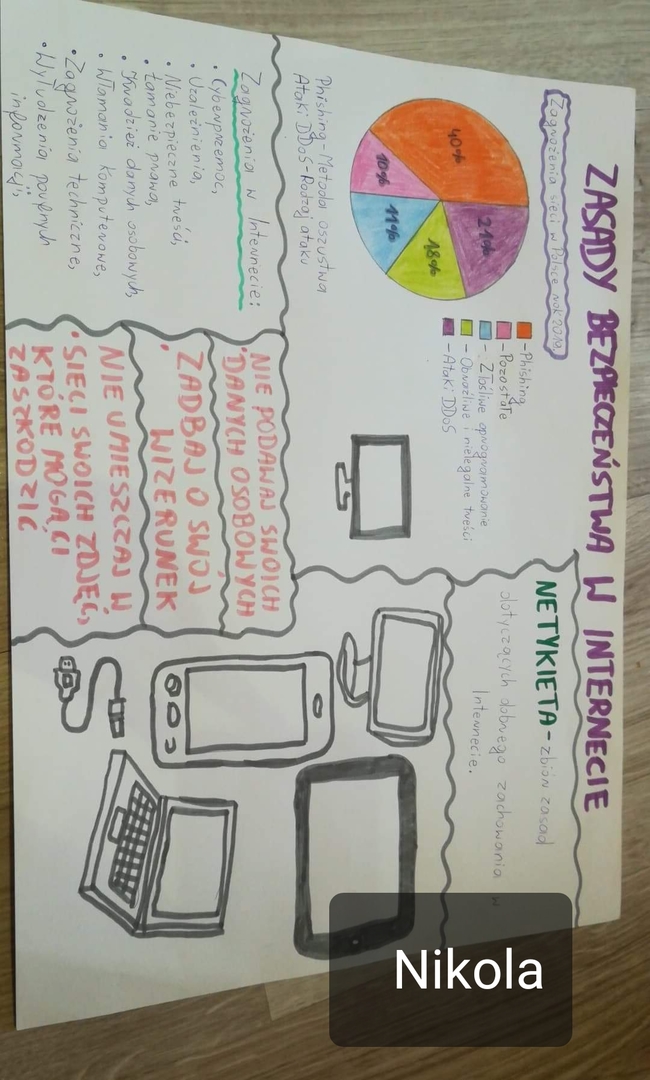 ZASADY BEZPIECZEŃSTWA W INTERNECIE
Zagrożenia sieci w Polsce rok 2019
40%
21%
18%
11%
10%
- Phishing
- Pozostałe
- Złośliwe oprogramowanie
- Obraźliwe i nielegalne treści
- Ataki DDoS
Phishing - Metoda oszustwa
Ataki DDoS - Rodzaj ataku
NETYKIETA - zbiór zasad
dotyczących dobrego zachowania w
Internecie.
Zagrożenia w Internecie:
• Cyberprzemoc,
• Uzależnienia,
• Niebezpieczne treści,
• Łamanie prawa,
• Kradzież danych osobowych,
• Włamania komputerowe,
• Zagrożenia techniczne,
• Wyłudzenia poufnych
informacji,
NIE PODAWAJ SWOICH
• DANYCH OSOBOWYCH
ZADBAJ O SWÓJ
• WIZERUNEK
NIE UMIESZCZAJ W
• SIECI SWOICH ZDJĘĆ,
KTÓRE MOGĄ CI
ZASZKODZIĆ
Nikola